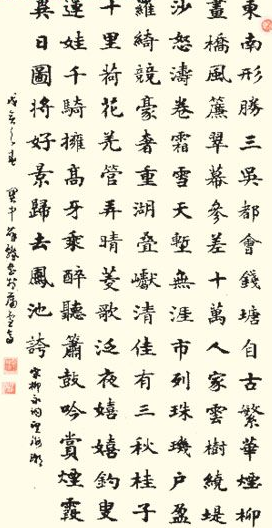 東南形勝三吳都會錢塘自古繁華煙柳
畫橋風簾翠幕參差十萬人家雲樹繞堤
沙怒濤卷霜雪天塹無涯市列珠璣戶盈
羅綺競豪奢重湖疊巘清佳有三秋桂子
十里荷花羌管弄晴菱歌泛夜嬉嬉釣叟
蓮娃千騎擁高牙乘醉聽簫鼓吟賞煙霞
異日圖將好景歸去鳳池誇
宋柳永詞望海潮